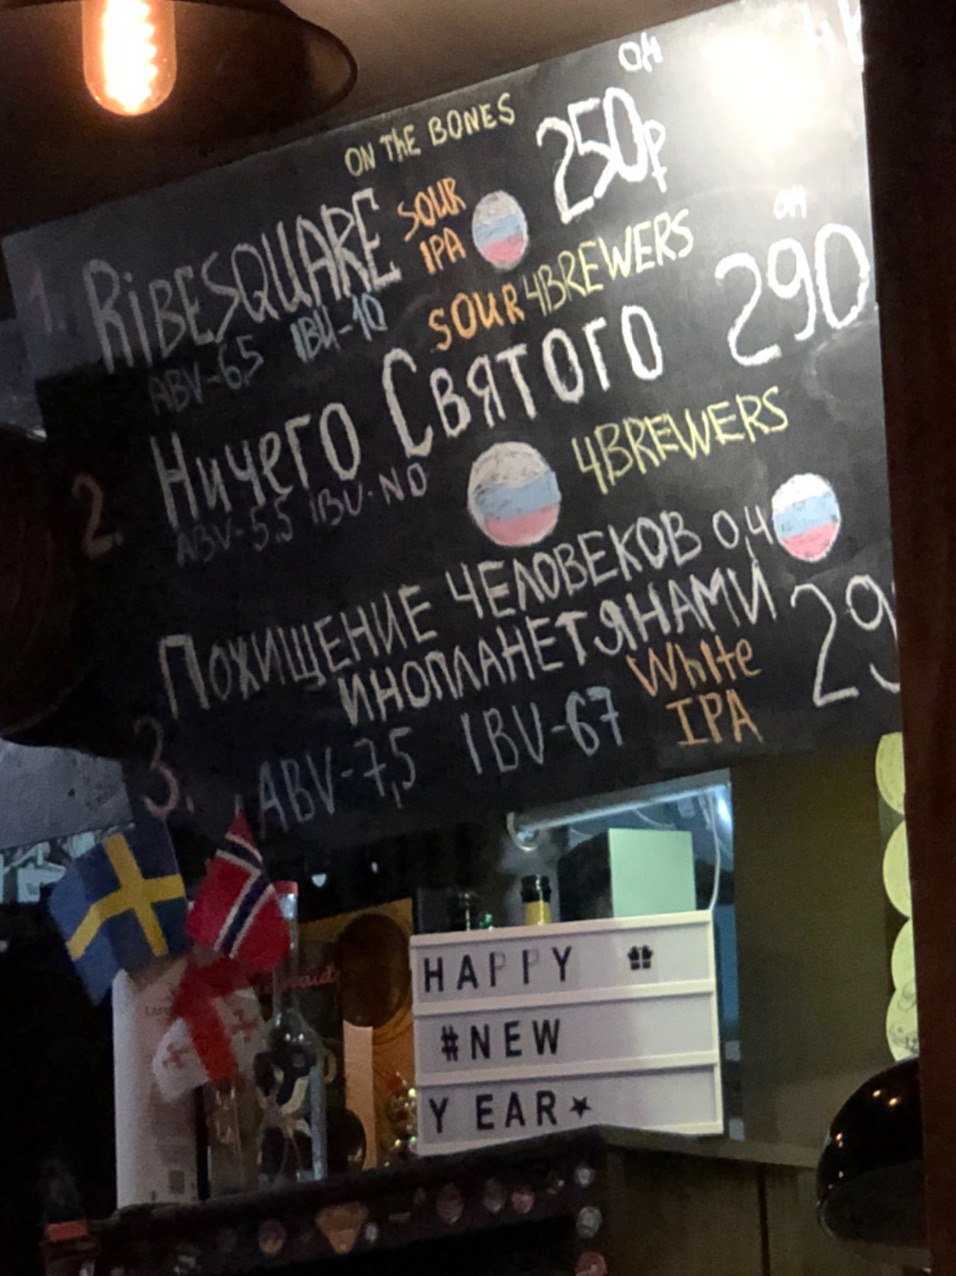 ON THE BONES
0,4
1. RIBESQUARE SOUR IPA 250₽
ABV-6,5 IBU-10
SOUR 4BREWERS
0,4
2. Ничего Святого 290
ABV-5,5 IBU-NO
4BREWERS
3. Похищение человеков 0,4
инопланетянами 29
ABV-7,5 IBV-67 White IPA
HAPPY
#NEW
YEAR★